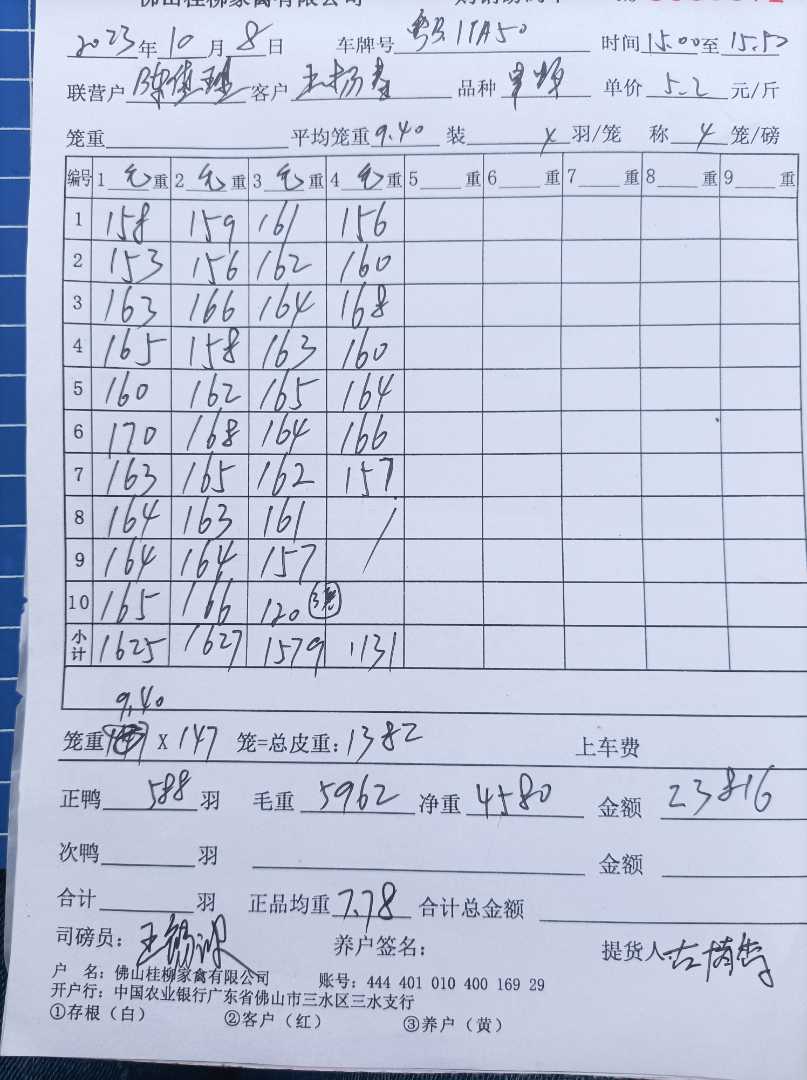 佛山桂柳家禽有限公司
2023年10月8日 车牌号 11A50 时间15.00至15.50
联营户 客户 品种 单价 5.2 元/斤
笼重 平均笼重9.40 装 4 羽/笼 称 4 笼/磅
编号 1 毛 重 2 毛 重 3 毛 重 4 毛 重 5 重 6 重 7 重 8 重 9 重
1 158 159 161 156
2 153 156 162 160
3 163 166 164 168
4 165 158 163 160
5 160 162 165 164
6 170 168 164 166
7 163 165 162 157
8 164 163 161 /
9 164 164 157
10 165 166 120 3
小计 1625 1627 1579 1131
9.40
笼重 X 147 笼=总皮重:1382 上车费
正鸭 588 羽 毛重 5962 净重 4580 金额 23816
次鸭 羽 金额
合计 羽 正品均重 7.78 合计总金额
司磅员: 养户签名: 提货人
户 名:佛山桂柳家禽有限公司 账号:444 401 010 400 169 29
开户行:中国农业银行广东省佛山市三水区三水支行
①存根(白) ②客户(红) ③养户(黄)